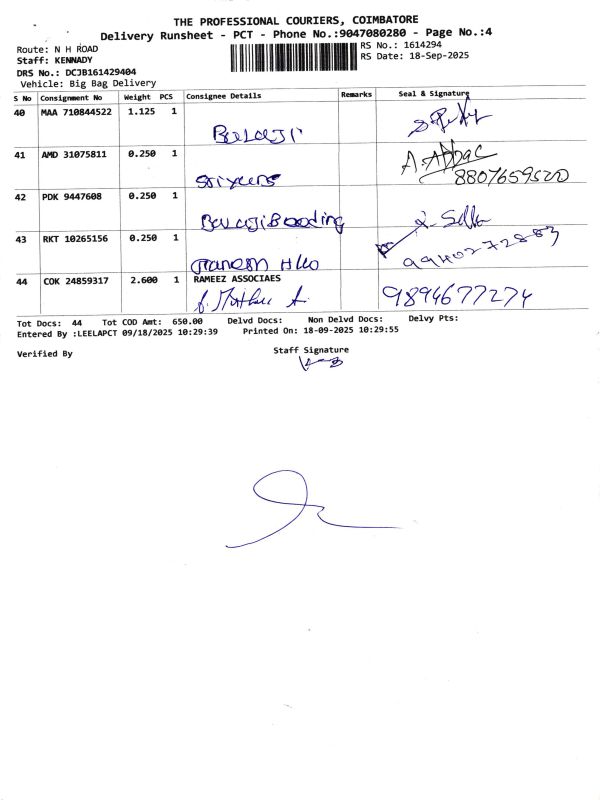 THE PROFESSIONAL COURIERS, COIMBATORE
Delivery Runsheet - PCT - Phone No.:9047080280 - Page No.:4
Route: N H ROAD
RS No.: 1614294
Staff: KENNADY
RS Date: 18-Sep-2025
DRS No.: DCJB161429404
Vehicle: Big Bag Delivery
S No Consignment No Weight PCS Consignee Details Remarks Seal & Signature
40 MAA 710844522 1.125 1
Balaji
41 AMD 31075811 0.250 1
A. Abbac
8807659520
42 PDK 9447608 0.250 1
Balaji Boading
43 RKT 10265156 0.250 1
44 COK 24859317 2.600 1 RAMEEZ ASSOCIAES
9894677274
Tot Docs: 44 Tot COD Amt: 650.00 Delvd Docs: Non Delvd Docs: Delvy Pts:
Entered By :LEELAPCT 09/18/2025 10:29:39 Printed On: 18-09-2025 10:29:55
Verified By
Staff Signature